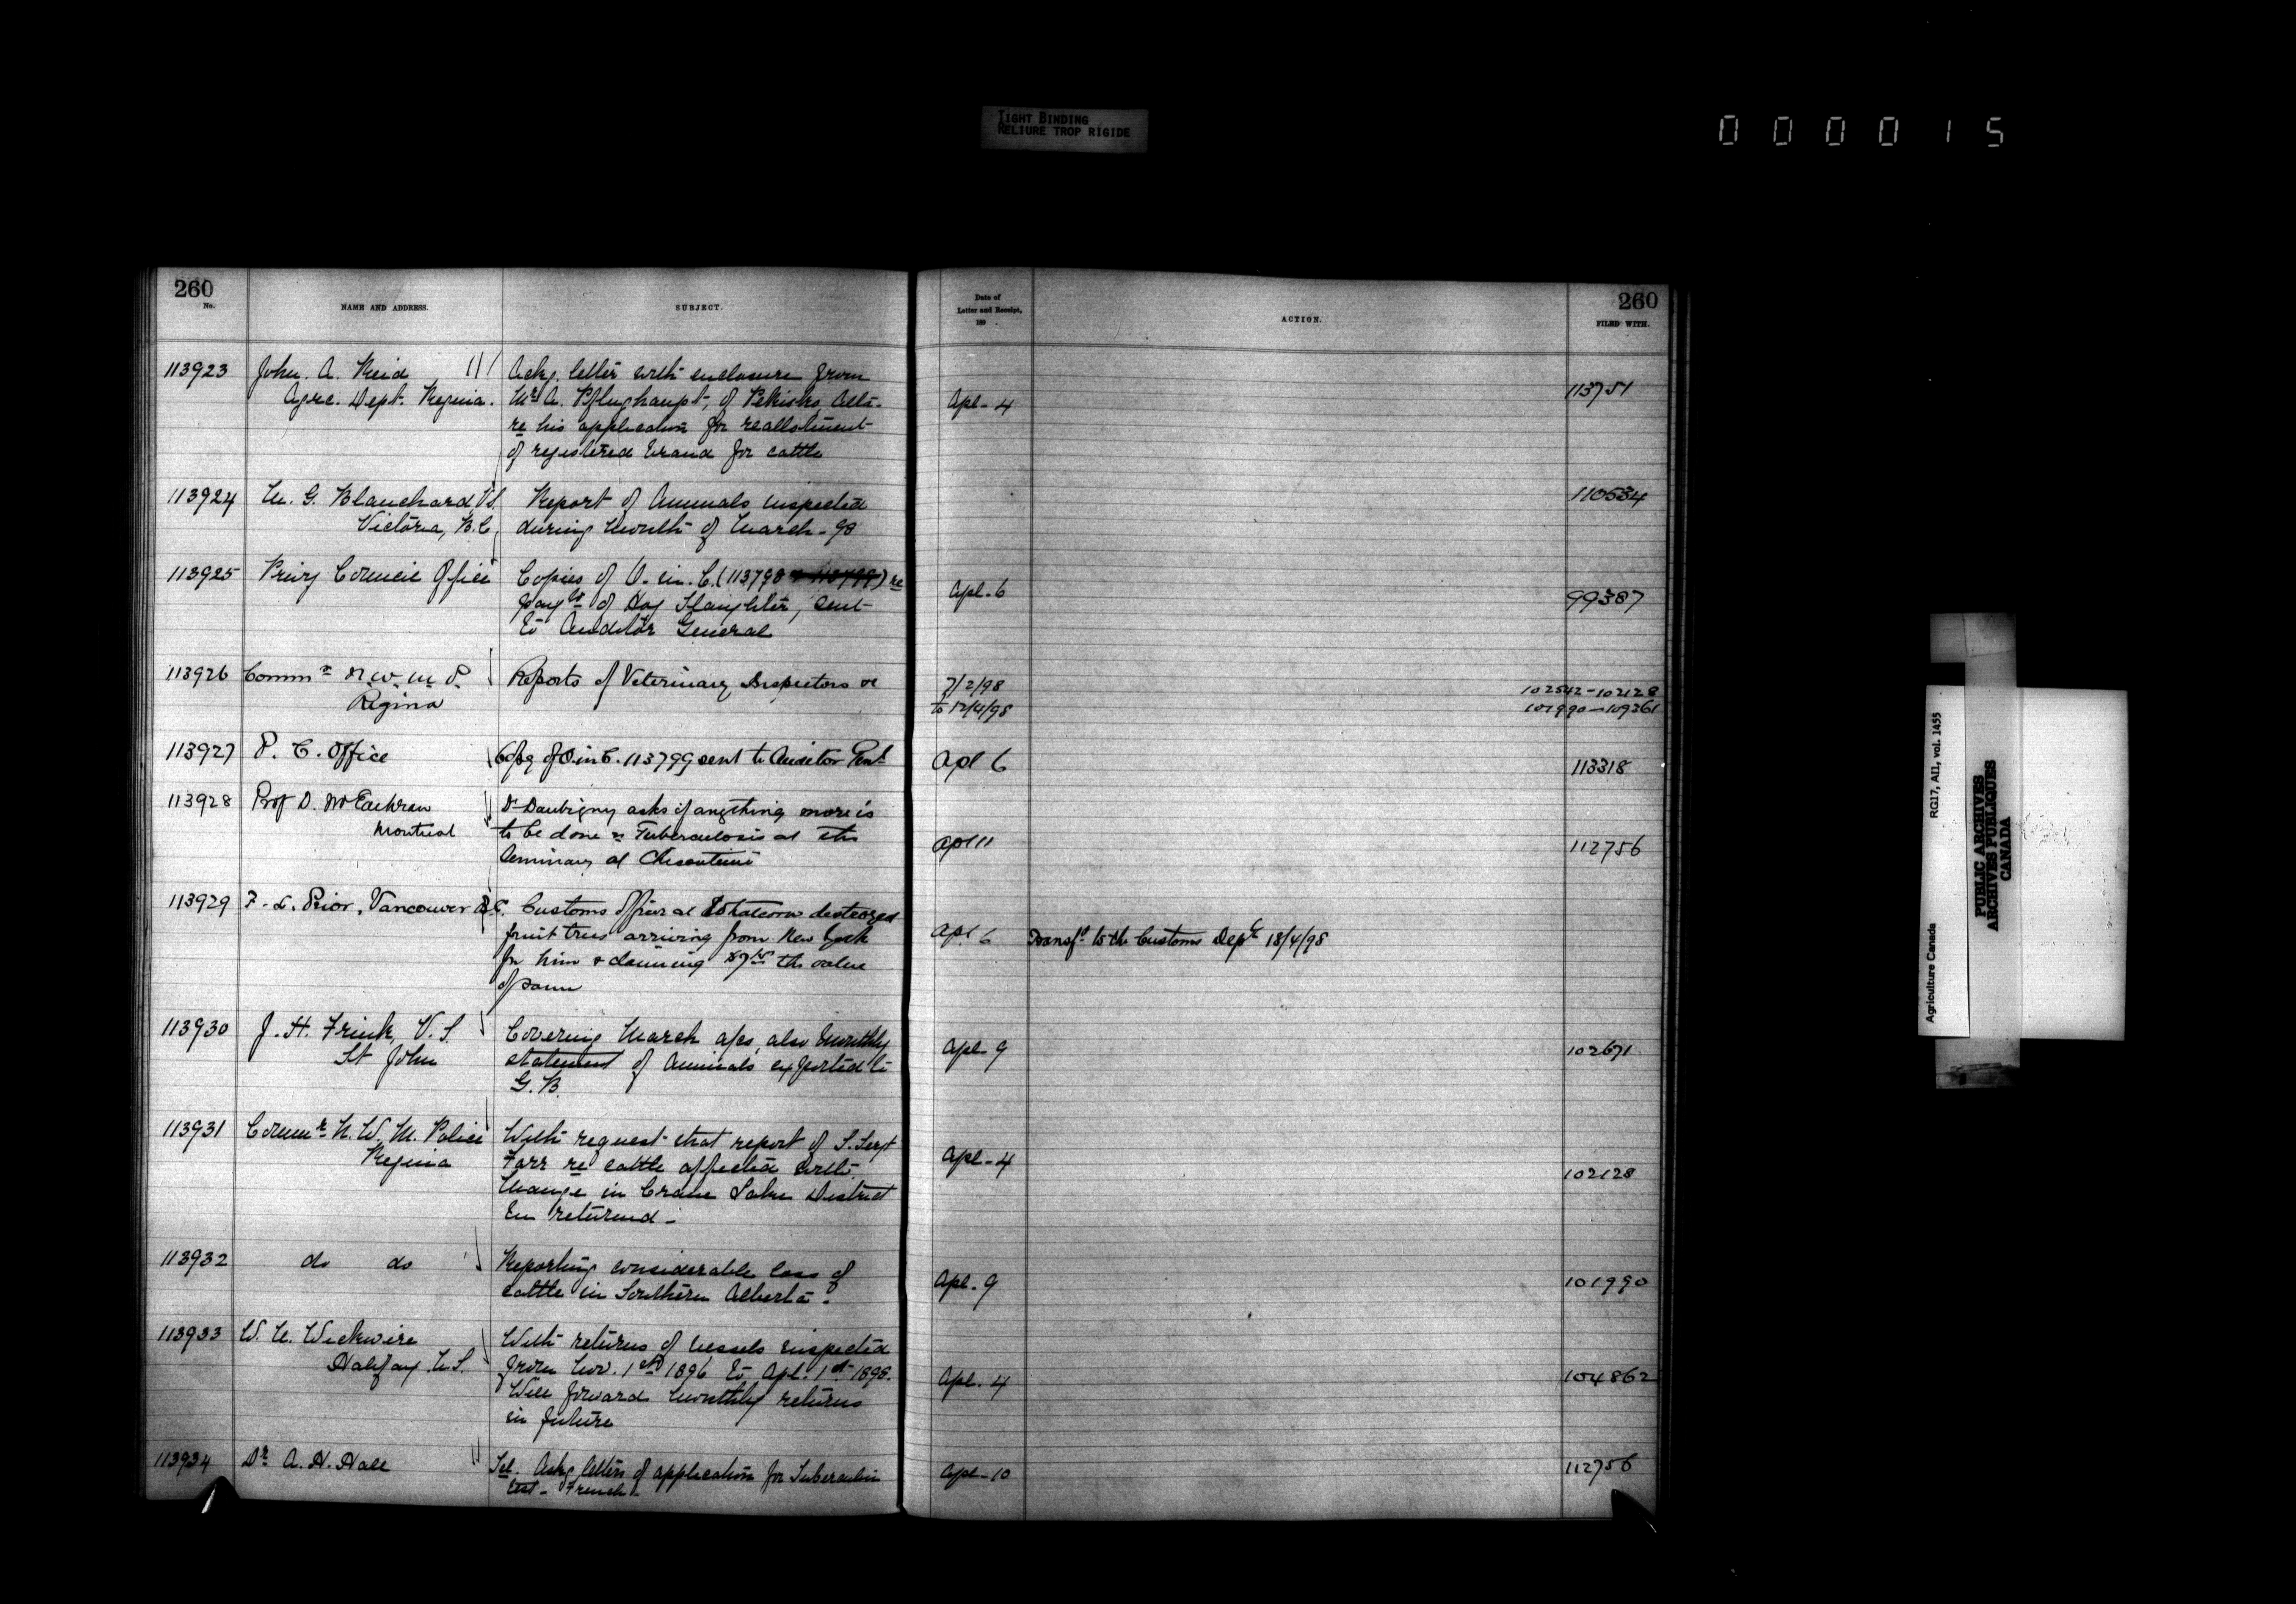 TIGHT BINDING
RELIURE TROP RIGIDE
000015
260
No.
NAME AND ADDRESS.
SUBJECT.
Date of
Letter and Receipt,
189 .
ACTION.
260
FILED WITH.
113923 John. A. Reid Ackg. letter with enclosure from
Agrc. Dept. Regina. Mr A. Pflughaupt, of Pekisko, Alta- Apl-4 113751
re his application for reallotment
of registered brand for cattle
113924 M. G. Blanchard V.S. Report of Animals inspected 110534
Victoria, B.C. during month of March-98
113925 Privy Council Office Copies of O. in. C. (113798 & 113799) re Apl.6 99387
of Hog Slaughter, sent
to Auditor General
113926 Commr N.W.M.P. Reports of Veterinary Inspectors re 7/2/98 102542-102128
Regina to 12/4/98 101990-109261
113927 P. C. Office Copy of O in C. 113799 sent to Auditor Genl Apl 6 113318
113928 Prof D. McEachran Dr Daubigny asks if anything more is
Montreal to be done re Tuberculosis at the Apl 11 112756
Seminary at Chicoutimi
113929 F. L. Prior, Vancouver B.C. Customs officer at Whatcom destroyed
fruit trees arriving from New York Apl 6 Transfd to the Customs Dept 18/4/98
for him & claiming the value
of same
113930 J. H. Frink, V. S. Covering March a/cs, also Monthly Apl 9 102671
St John statement of Animals exported to
G. B.
113931 Commr N. W. M. Police With request that report of S. Sergt Apl-4 102128
Regina Farr re cattle affected with
Mange in Crane Lake District
be returned-
113932 do do Reporting considerable loss of Apl. 9 101990
cattle in Southern Alberta.
113933 W. N. Wickwire With returns of vessels inspected
Halifax N.S. from Nov. 1st 1896 to Apl. 1st 1898. Apl. 4 104862
Will forward monthly returns
in future
113934 Dr A. H. Hall Ackg letters of application for Tuberculin Apl-10 112756
test- French-
Agriculture Canada RG17, AII, vol. 1455
PUBLIC ARCHIVES
ARCHIVES PUBLIQUES
CANADA